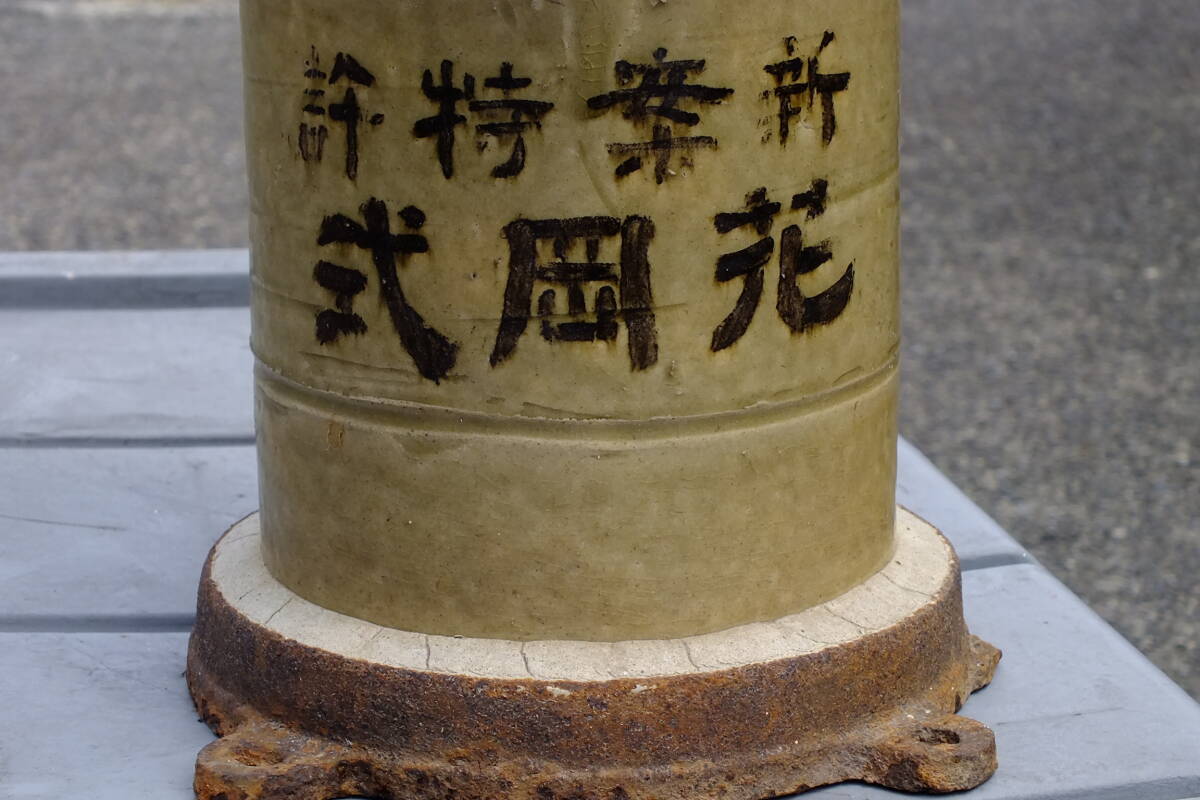 新案特許
花岡式